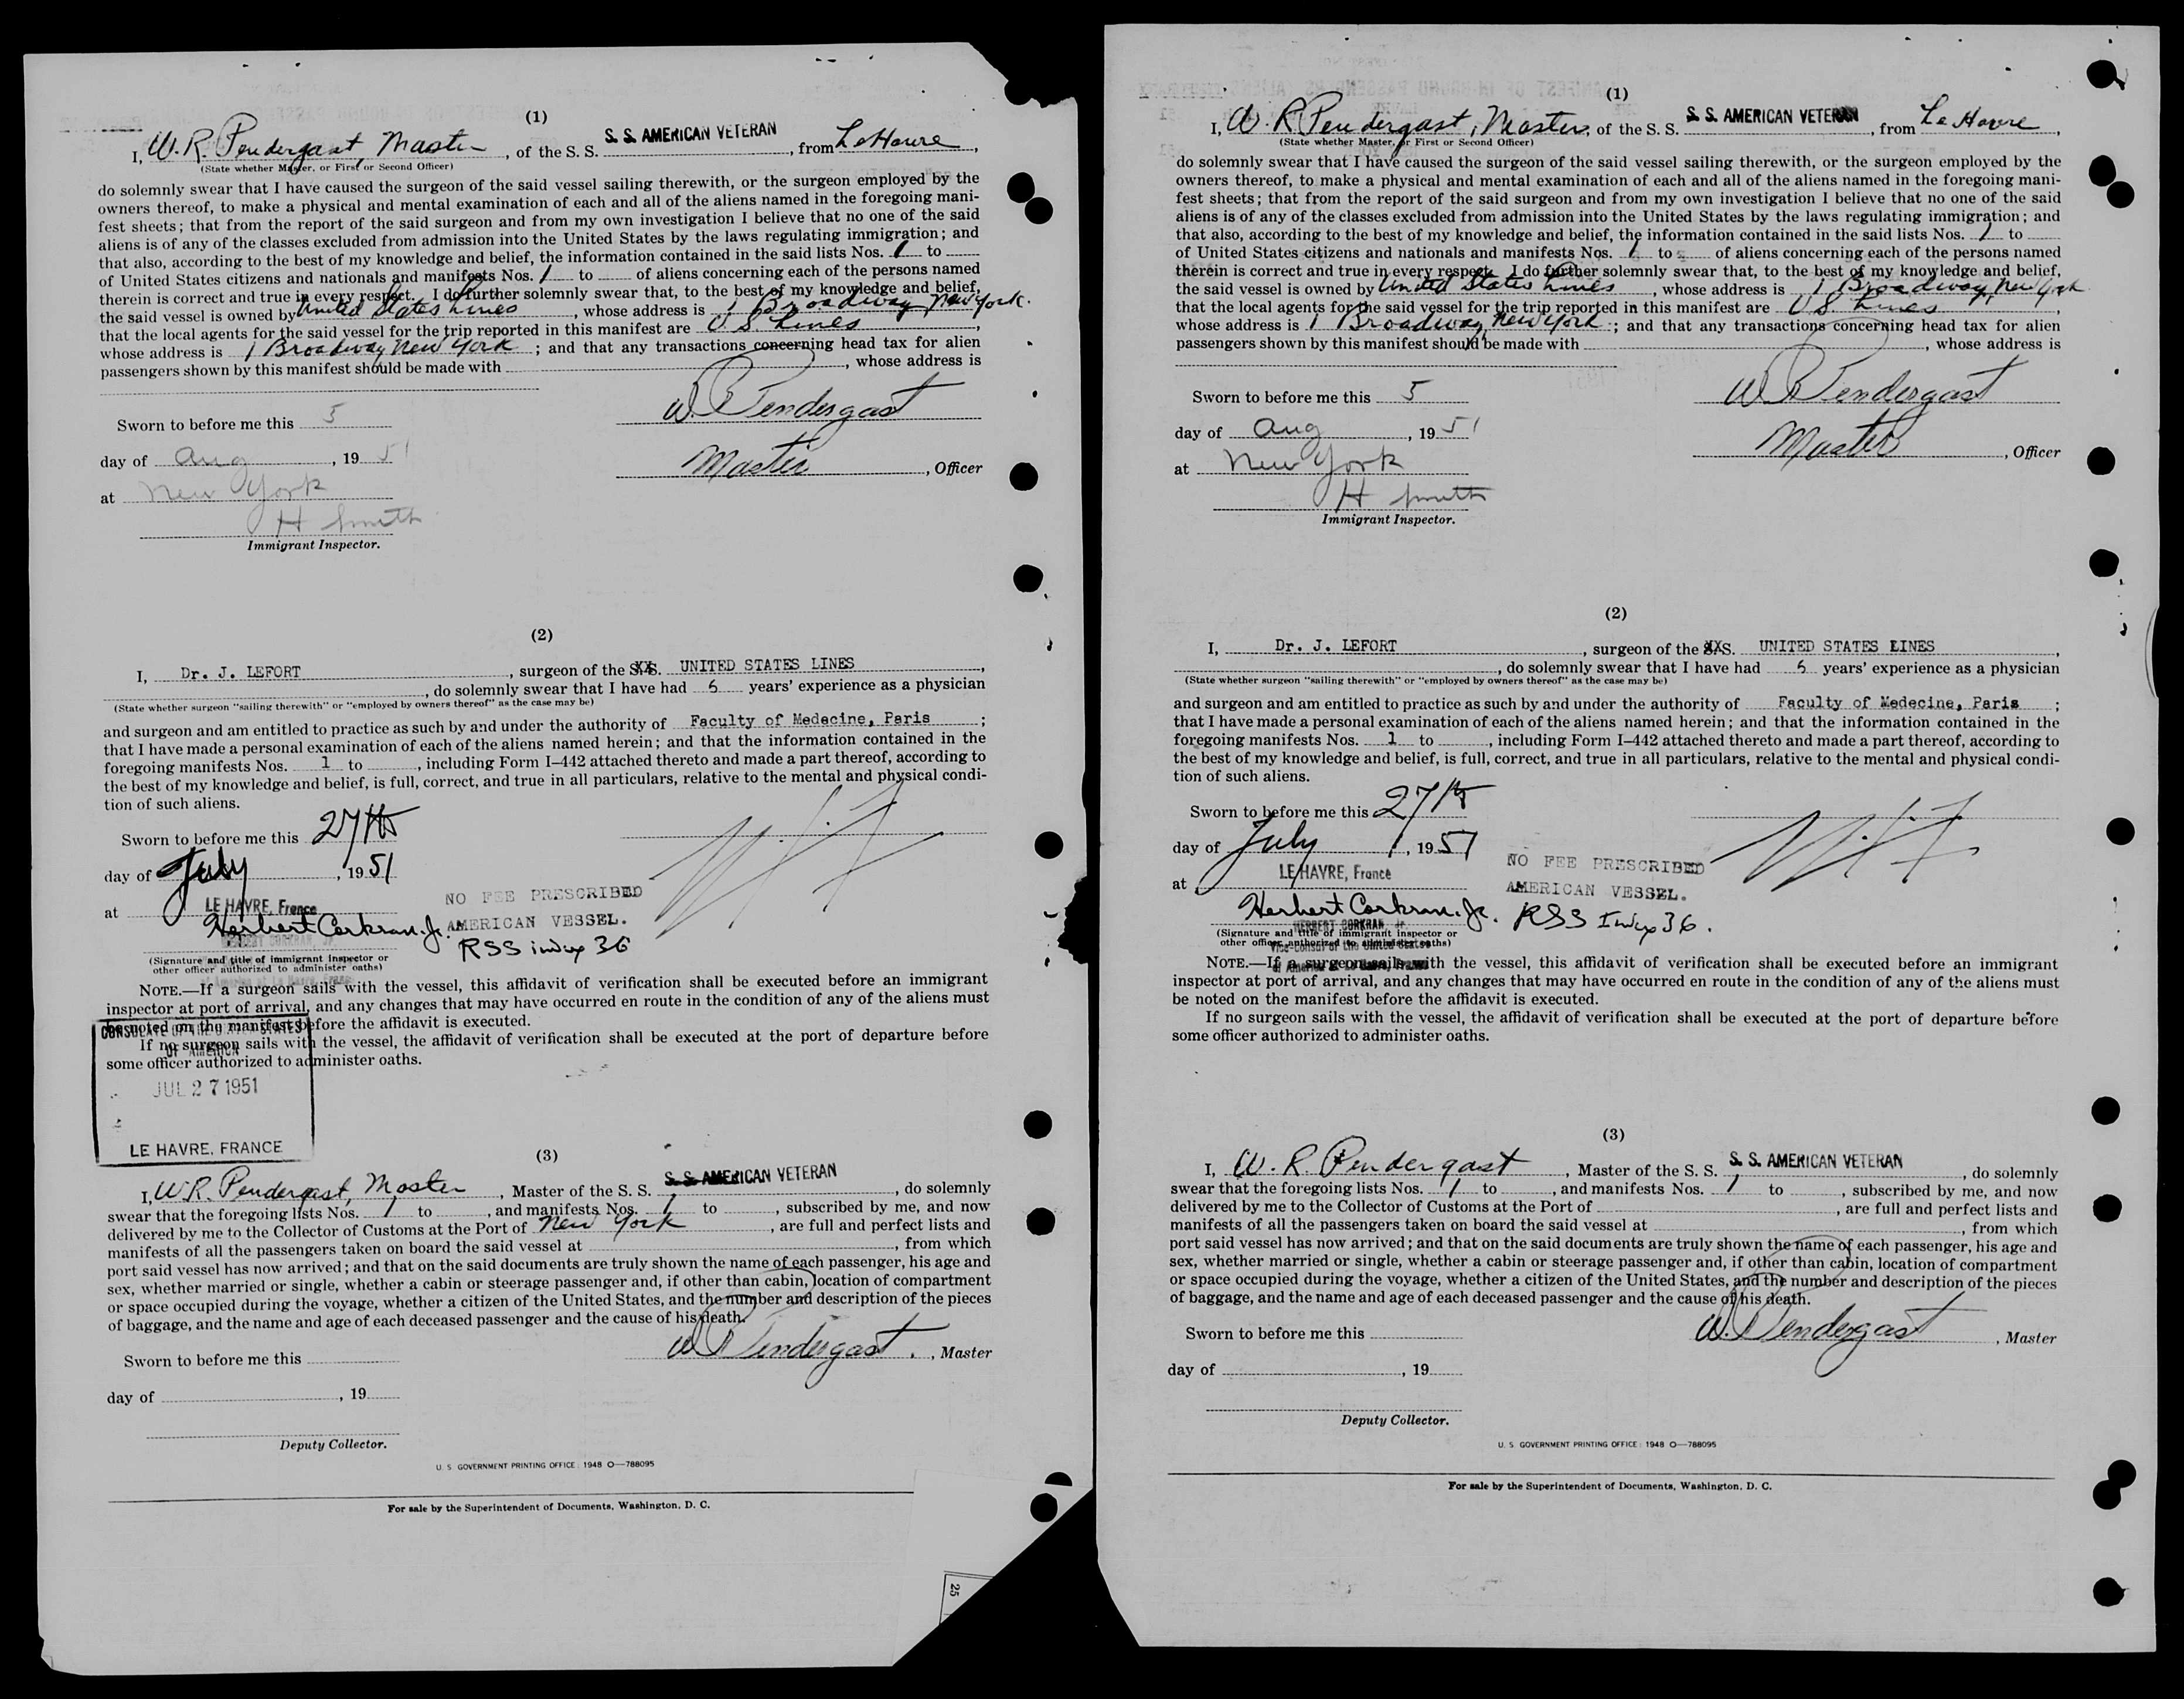 (1)
I, W. R. Pendergast, Master, of the S. S. S. S. AMERICAN VETERAN, from Le Havre,
(State whether Master, or First or Second Officer)
do solemnly swear that I have caused the surgeon of the said vessel sailing therewith, or the surgeon employed by the
owners thereof, to make a physical and mental examination of each and all of the aliens named in the foregoing mani-
fest sheets; that from the report of the said surgeon and from my own investigation I believe that no one of the said
aliens is of any of the classes excluded from admission into the United States by the laws regulating immigration; and
that also, according to the best of my knowledge and belief, the information contained in the said lists Nos. 1 to
of United States citizens and nationals and manifests Nos. 1 to of aliens concerning each of the persons named
therein is correct and true in every respect. I do further solemnly swear that, to the best of my knowledge and belief,
the said vessel is owned by United States Lines, whose address is 1 Broadway New York.
that the local agents for the said vessel for the trip reported in this manifest are U S. Lines,
whose address is 1 Broadway New York; and that any transactions concerning head tax for alien
passengers shown by this manifest should be made with , whose address is
Sworn to before me this 5
W R Pendergast
day of Aug, 19 51
Master, Officer
at New York
H Smith
Immigrant Inspector.
(2)
I, Dr. J. LEFORT, surgeon of the S.S. UNITED STATES LINES,
, do solemnly swear that I have had 5 years' experience as a physician
(State whether surgeon "sailing therewith" or "employed by owners thereof" as the case may be)
and surgeon and am entitled to practice as such by and under the authority of Faculty of Medecine, Paris;
that I have made a personal examination of each of the aliens named herein; and that the information contained in the
foregoing manifests Nos. 1 to , including Form I–442 attached thereto and made a part thereof, according to
the best of my knowledge and belief, is full, correct, and true in all particulars, relative to the mental and physical condi-
tion of such aliens.
Sworn to before me this 27th
day of July, 1951
NO FEE PRESCRIBED
at LE HAVRE, France
AMERICAN VESSEL.
Herbert Corkran Jr.
RSS index 36
HERBERT CORKRAN, JR.
(Signature and title of immigrant inspector or
other officer authorized to administer oaths)
NOTE.—If a surgeon sails with the vessel, this affidavit of verification shall be executed before an immigrant
inspector at port of arrival, and any changes that may have occurred en route in the condition of any of the aliens must
be noted on the manifest before the affidavit is executed.
If no surgeon sails with the vessel, the affidavit of verification shall be executed at the port of departure before
some officer authorized to administer oaths.
CONSULATE OF THE UNITED STATES
OF AMERICA
JUL 27 1951
LE HAVRE, FRANCE
(3)
I, W.R. Pendergast, Master, Master of the S. S. S. S. AMERICAN VETERAN, do solemnly
swear that the foregoing lists Nos. 1 to , and manifests Nos. 1 to , subscribed by me, and now
delivered by me to the Collector of Customs at the Port of New York, are full and perfect lists and
manifests of all the passengers taken on board the said vessel at , from which
port said vessel has now arrived; and that on the said documents are truly shown the name of each passenger, his age and
sex, whether married or single, whether a cabin or steerage passenger and, if other than cabin, location of compartment
or space occupied during the voyage, whether a citizen of the United States, and the number and description of the pieces
of baggage, and the name and age of each deceased passenger and the cause of his death.
W R Pendergast, Master
Sworn to before me this
day of , 19
Deputy Collector.
U. S. GOVERNMENT PRINTING OFFICE: 1948 O—788095
For sale by the Superintendent of Documents, Washington, D. C.
25
(1)
I, W. R. Pendergast, Master, of the S. S. S. S. AMERICAN VETERAN, from Le Havre,
(State whether Master, or First or Second Officer)
do solemnly swear that I have caused the surgeon of the said vessel sailing therewith, or the surgeon employed by the
owners thereof, to make a physical and mental examination of each and all of the aliens named in the foregoing mani-
fest sheets; that from the report of the said surgeon and from my own investigation I believe that no one of the said
aliens is of any of the classes excluded from admission into the United States by the laws regulating immigration; and
that also, according to the best of my knowledge and belief, the information contained in the said lists Nos. 1 to
of United States citizens and nationals and manifests Nos. 1 to of aliens concerning each of the persons named
therein is correct and true in every respect. I do further solemnly swear that, to the best of my knowledge and belief,
the said vessel is owned by United States Lines, whose address is 1 Broadway, New York
that the local agents for the said vessel for the trip reported in this manifest are U S. Lines,
whose address is 1 Broadway, New York; and that any transactions concerning head tax for alien
passengers shown by this manifest should be made with , whose address is
Sworn to before me this 5
W R Pendergast
day of Aug, 19 51
Master, Officer
at New York
H Smith
Immigrant Inspector.
(2)
I, Dr. J. LEFORT, surgeon of the S.S. UNITED STATES LINES,
, do solemnly swear that I have had 5 years' experience as a physician
(State whether surgeon "sailing therewith" or "employed by owners thereof" as the case may be)
and surgeon and am entitled to practice as such by and under the authority of Faculty of Medecine, Paris;
that I have made a personal examination of each of the aliens named herein; and that the information contained in the
foregoing manifests Nos. 1 to , including Form I–442 attached thereto and made a part thereof, according to
the best of my knowledge and belief, is full, correct, and true in all particulars, relative to the mental and physical condi-
tion of such aliens.
Sworn to before me this 27th
day of July, 1951
NO FEE PRESCRIBED
at LE HAVRE, France
AMERICAN VESSEL.
Herbert Corkran Jr.
RSS Index 36.
HERBERT CORKRAN, Jr.
(Signature and title of immigrant inspector or
other officer authorized to administer oaths)
Vice-Consul of the United States
of America at Le Havre, France
NOTE.—If a surgeon sails with the vessel, this affidavit of verification shall be executed before an immigrant
inspector at port of arrival, and any changes that may have occurred en route in the condition of any of the aliens must
be noted on the manifest before the affidavit is executed.
If no surgeon sails with the vessel, the affidavit of verification shall be executed at the port of departure before
some officer authorized to administer oaths.
(3)
I, W. R. Pendergast, Master of the S. S. S. S. AMERICAN VETERAN, do solemnly
swear that the foregoing lists Nos. 1 to , and manifests Nos. 1 to , subscribed by me, and now
delivered by me to the Collector of Customs at the Port of , are full and perfect lists and
manifests of all the passengers taken on board the said vessel at , from which
port said vessel has now arrived; and that on the said documents are truly shown the name of each passenger, his age and
sex, whether married or single, whether a cabin or steerage passenger and, if other than cabin, location of compartment
or space occupied during the voyage, whether a citizen of the United States, and the number and description of the pieces
of baggage, and the name and age of each deceased passenger and the cause of his death.
W. R Pendergast, Master
Sworn to before me this
day of , 19
Deputy Collector.
U. S. GOVERNMENT PRINTING OFFICE: 1948 O—788095
For sale by the Superintendent of Documents, Washington, D. C.